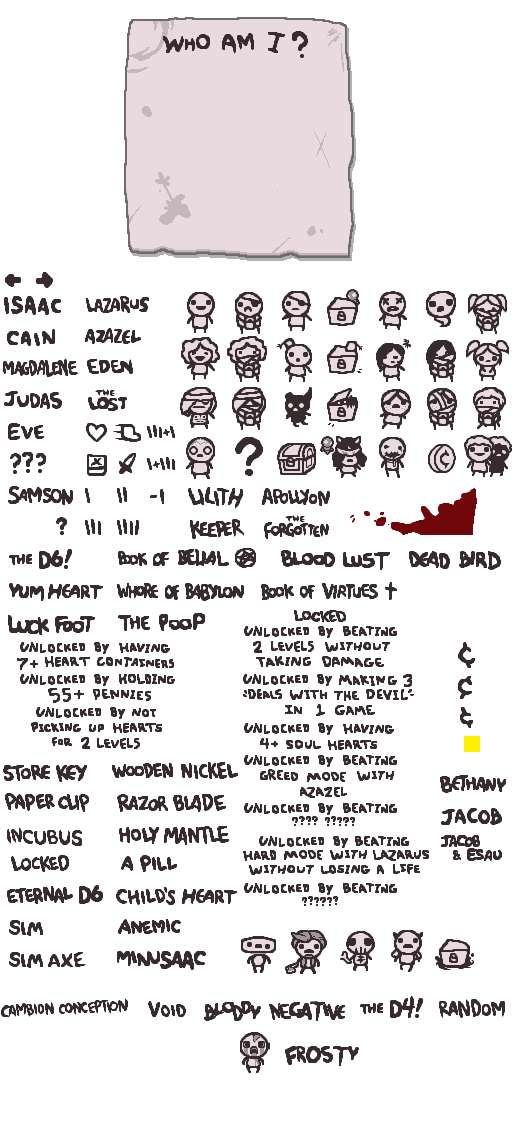 WHO AM I?
ISAAC LAZARUS
CAIN AZAZEL
MAGDALENE EDEN
JUDAS THE LOST
EVE
???
SAMSON I II -I LILITH APOLLYON
? III IIII KEEPER THE FORGOTTEN
THE D6! BOOK OF BELIAL BLOOD LUST DEAD BIRD
YUM HEART WHORE OF BABYLON BOOK OF VIRTUES
LUCK FOOT THE POOP
UNLOCKED BY HAVING
7+ HEART CONTAINERS
UNLOCKED BY HOLDING
55+ PENNIES
UNLOCKED BY NOT
PICKING UP HEARTS
FOR 2 LEVELS
LOCKED
UNLOCKED BY BEATING
2 LEVELS WITHOUT
TAKING DAMAGE
UNLOCKED BY MAKING 3
"DEALS WITH THE DEVIL"
IN 1 GAME
UNLOCKED BY HAVING
4+ SOUL HEARTS
UNLOCKED BY BEATING
GREED MODE WITH
AZAZEL
UNLOCKED BY BEATING
???? ?????
UNLOCKED BY BEATING
HARD MODE WITH LAZARUS
WITHOUT LOSING A LIFE
UNLOCKED BY BEATING
??????
¢
¢
¢
STORE KEY WOODEN NICKEL
PAPER CLIP RAZOR BLADE
INCUBUS HOLY MANTLE
LOCKED A PILL
ETERNAL D6 CHILD'S HEART
SIM ANEMIC
SIM AXE MINUSAAC
BETHANY
JACOB
JACOB
& ESAU
CAMBION CONCEPTION VOID BLOODY NEGATIVE THE D4! RANDOM
FROSTY